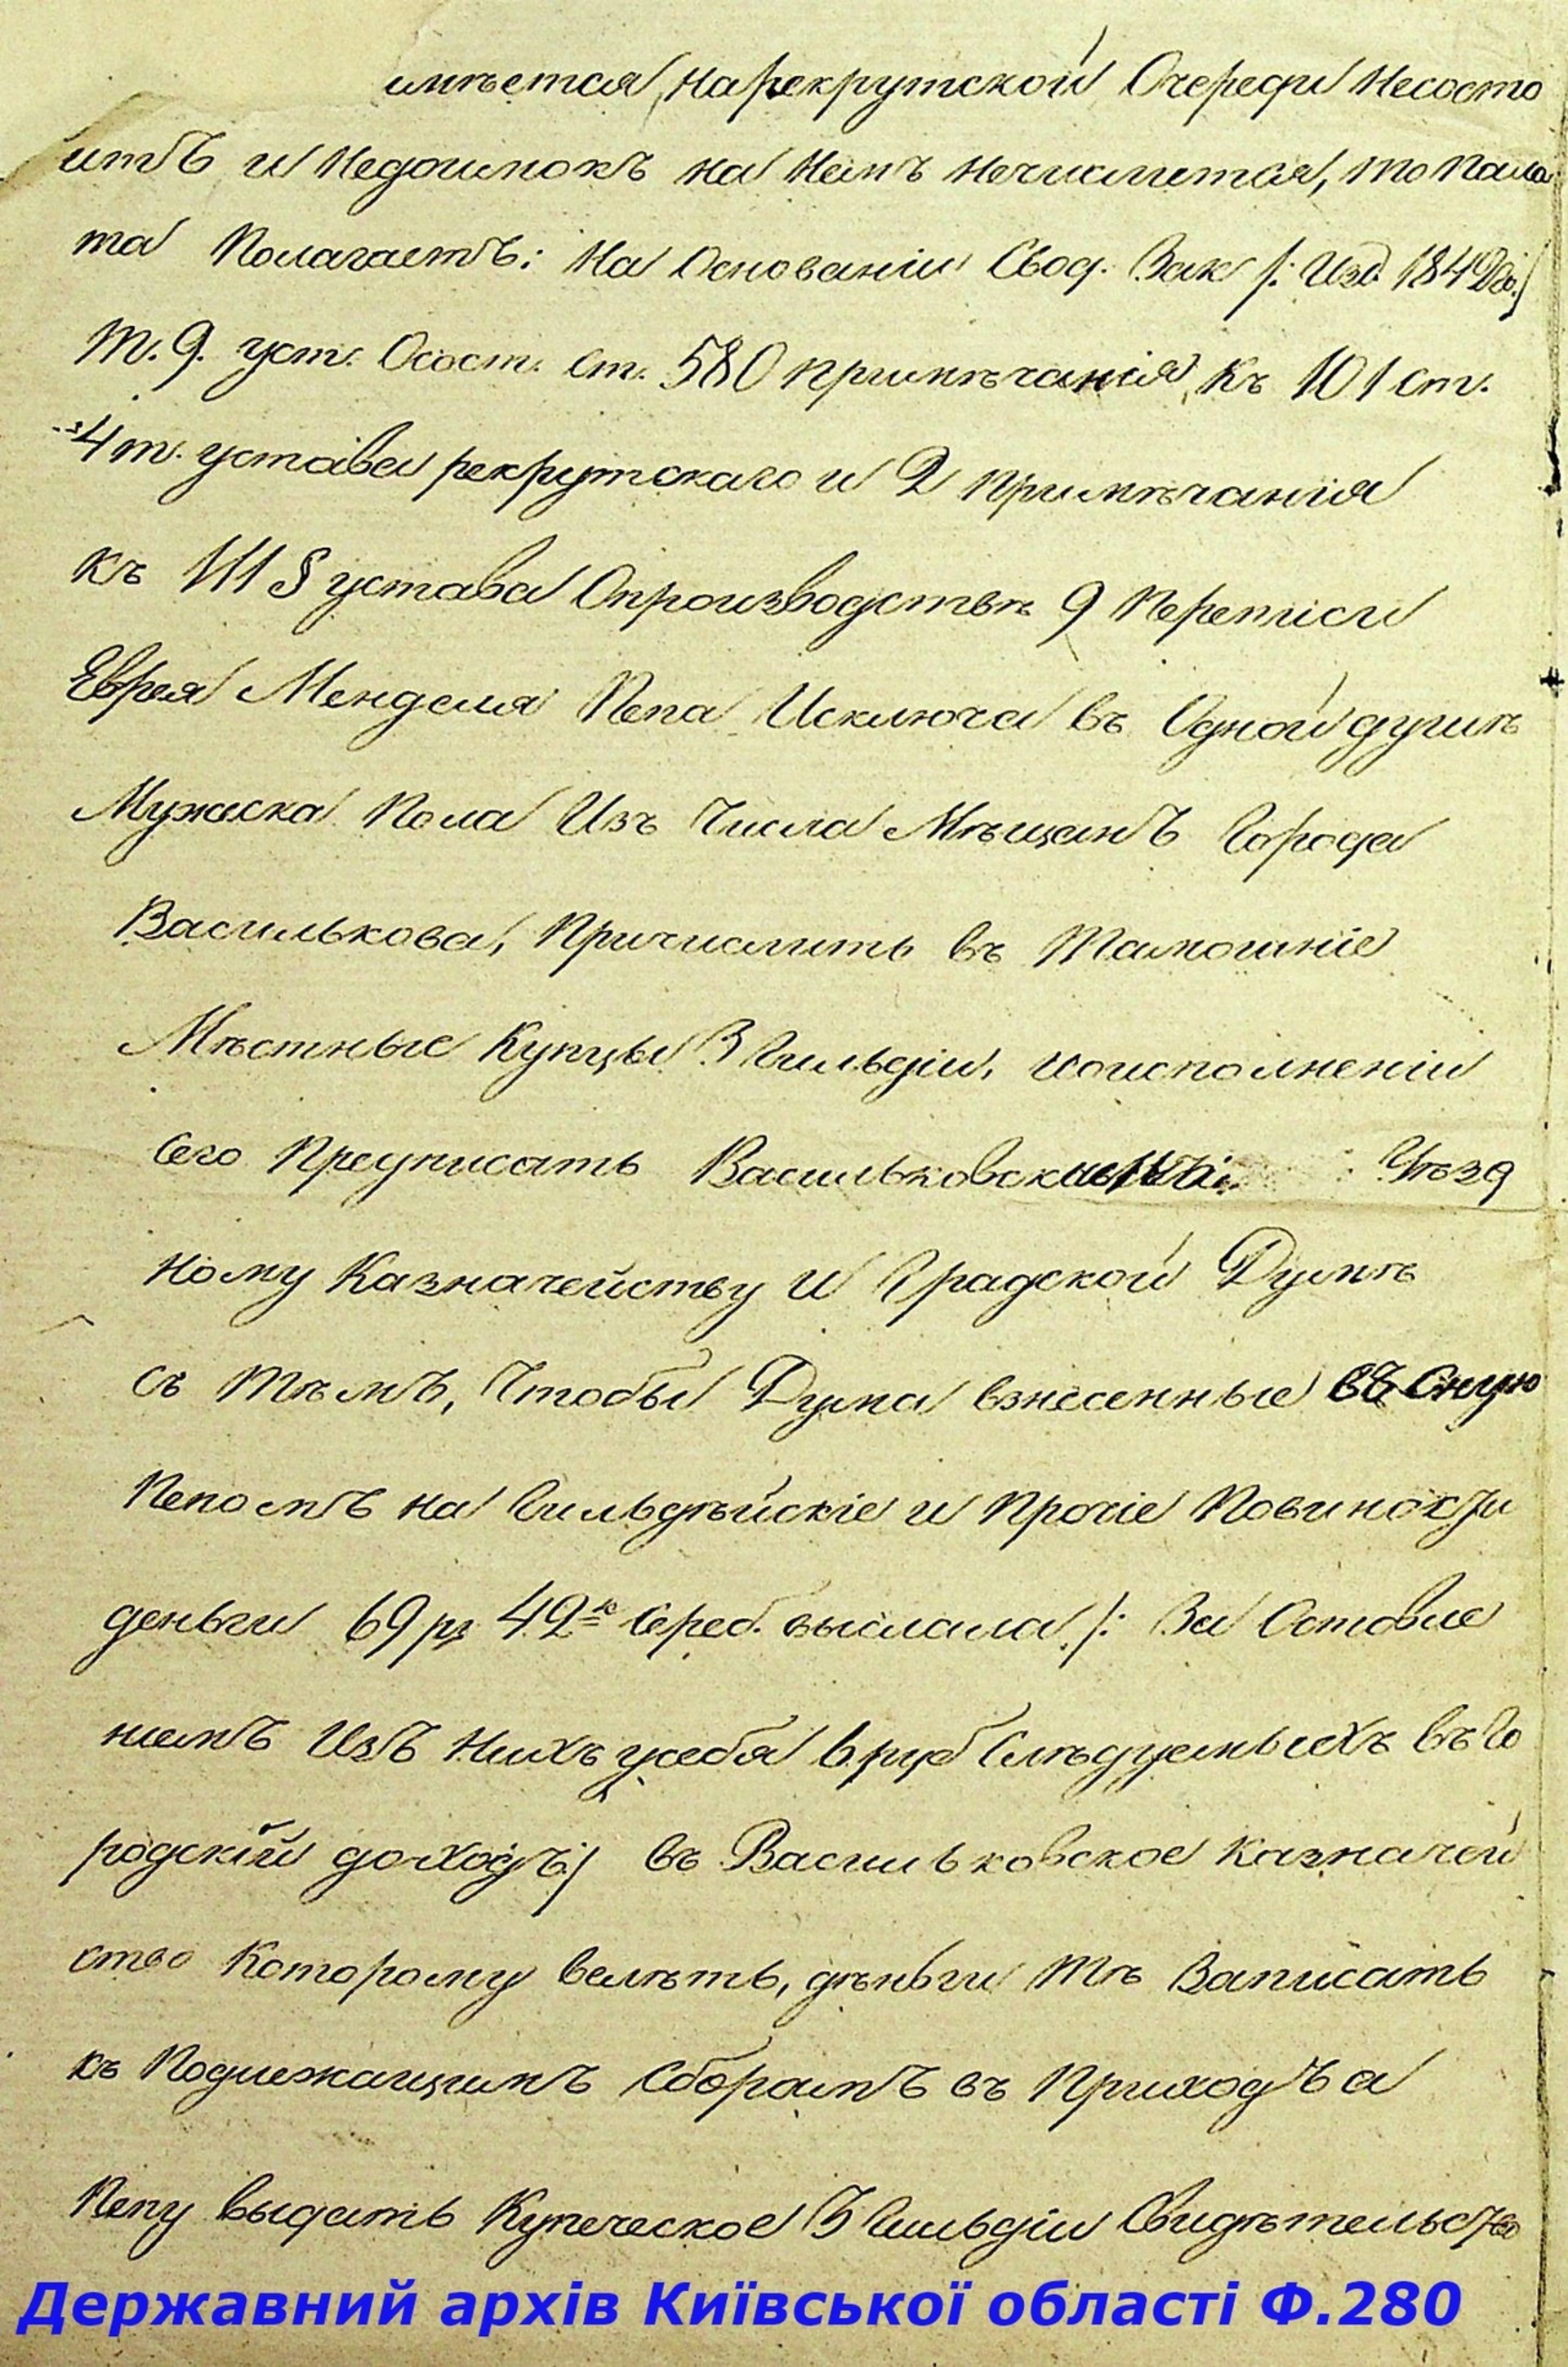 имѣется, на рекрутской Очереди Несосто
итъ и Недоимокъ на Немъ Нечислится, то Пала
та Полагаетъ: На Основаніи Свод. Зак /: Изд. 1842 го:/
Т. 9. уст. О сост. ст. 580 примѣчанія, къ 101 ст.
4 т. устава рекрутскаго и 2 примѣчанія
къ 111 § устава Опроизводствѣ 9 Переписи
Еврея Менделя Пепа Исключа въ Одной душѣ
Мужеска Пола Изъ Числа Мѣщанъ Города
Василькова, Причислить въ Тамошніе
Мѣстные Купцы 3 Гильдіи, и о исполненіи
Сего Предписать Васильковскимъ Уѣзд
ному Казначейству и Градской Думѣ
съ тѣмъ, Чтобы Дума взнесенные въ Оную
Пепомъ на Гильдѣйскіе и Прочіе Повиности
деньги 69 р. 42 к Сереб. выслала /: За Оставле
ніемъ Изъ Нихъ у себя 6 руб Слѣдуемыхъ въ Го
родскій доходъ:/ въ Васильковское Казначей
ство Которому велѣть, дѣньги Тѣ Записать
къ Подлежащимъ Сборамъ въ Приходъ а
Пепу выдать Купеческое 3 Гильдіи Свидѣтельство
Державний архів Київської області Ф.280